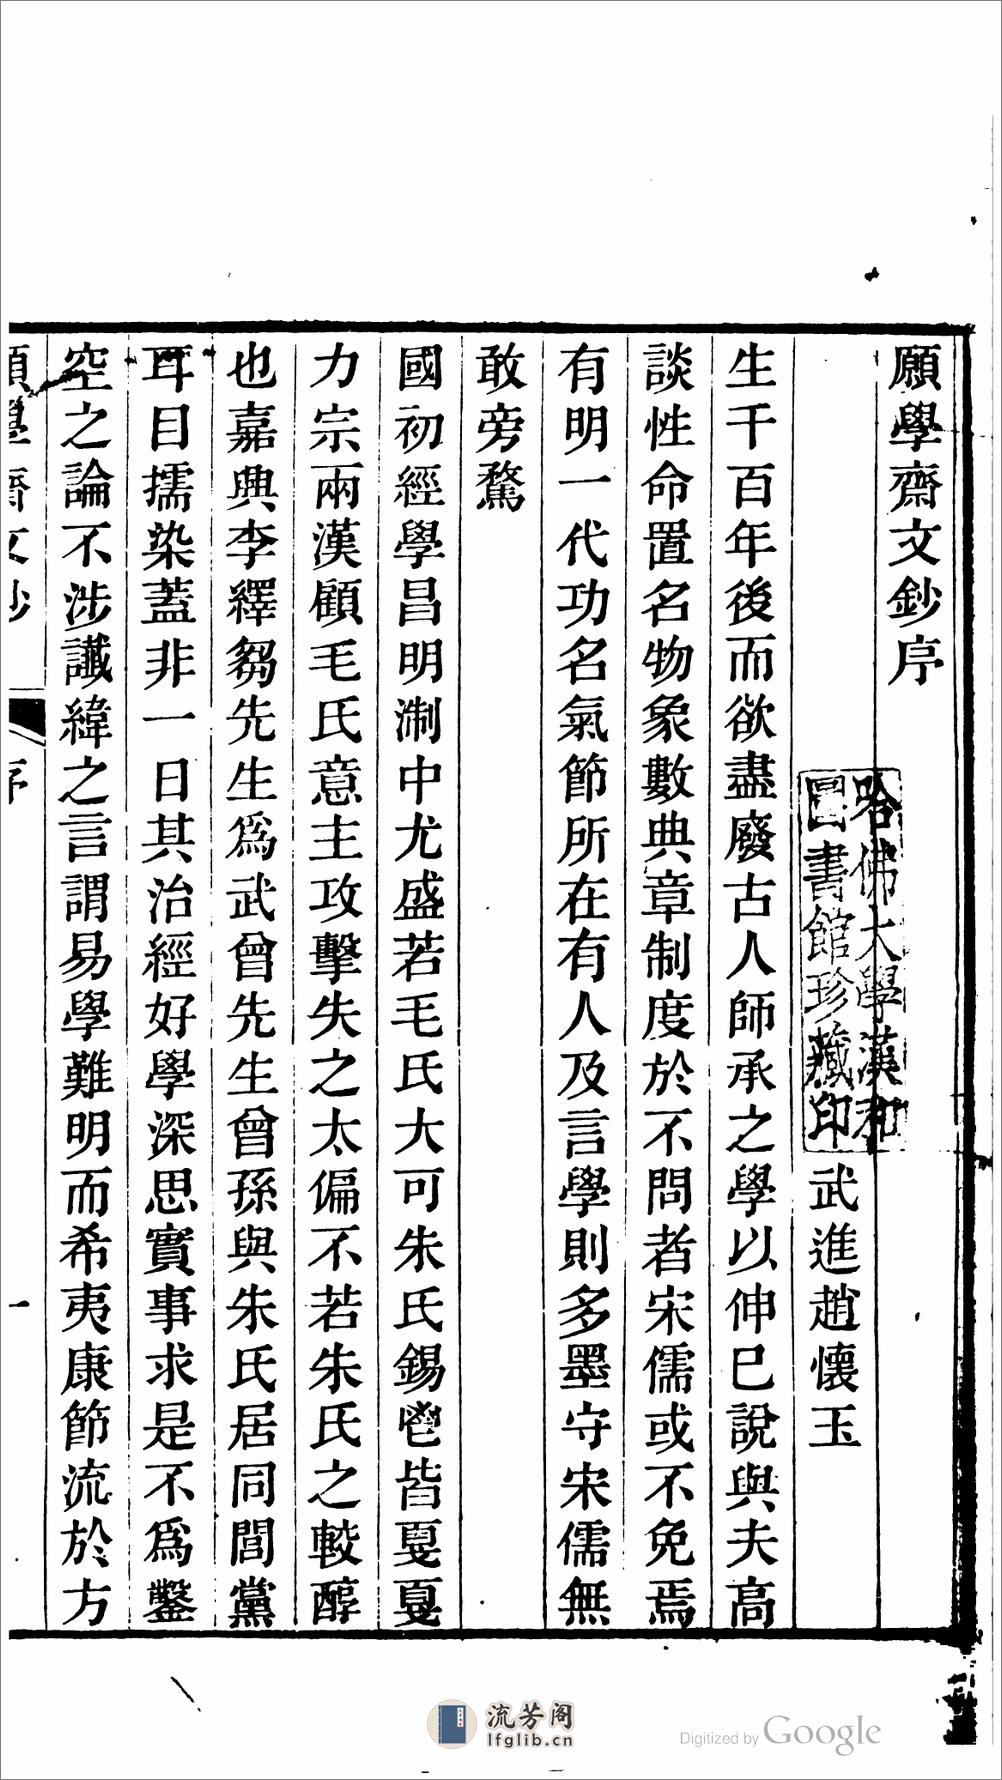 願學齋文鈔序
武進趙懷玉
生千百年後而欲盡廢古人師承之學以伸已說與夫高
談性命置名物象數典章制度於不問者宋儒或不免焉
有明一代功名氣節所在有人及言學則多墨守宋儒無
敢旁騖
國初經學昌明淛中尤盛若毛氏大可朱氏錫鬯皆戛戛
力宗兩漢顧毛氏意主攻擊失之太偏不若朱氏之較醇
也嘉興李繹芻先生爲武曾先生曾孫與朱氏居同閭黨
耳目擩染蓋非一日其治經好學深思實事求是不爲鑿
空之論不涉讖緯之言謂易學難明而希夷康節流於方
願學齋文鈔
序
一
哈佛大學漢和
圖書館珍藏印
流芳阁
lfglib.cn
Digitized by Google